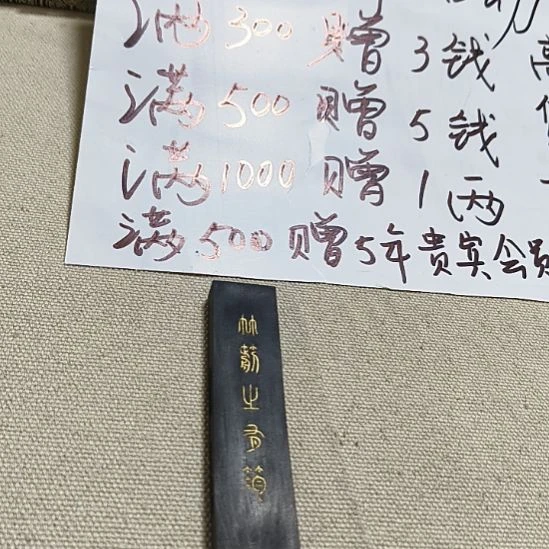 满300 赠 3钱
满500 赠 5钱
满1000 赠 1两
满500赠5年贵宾会员
竹箭之有筠